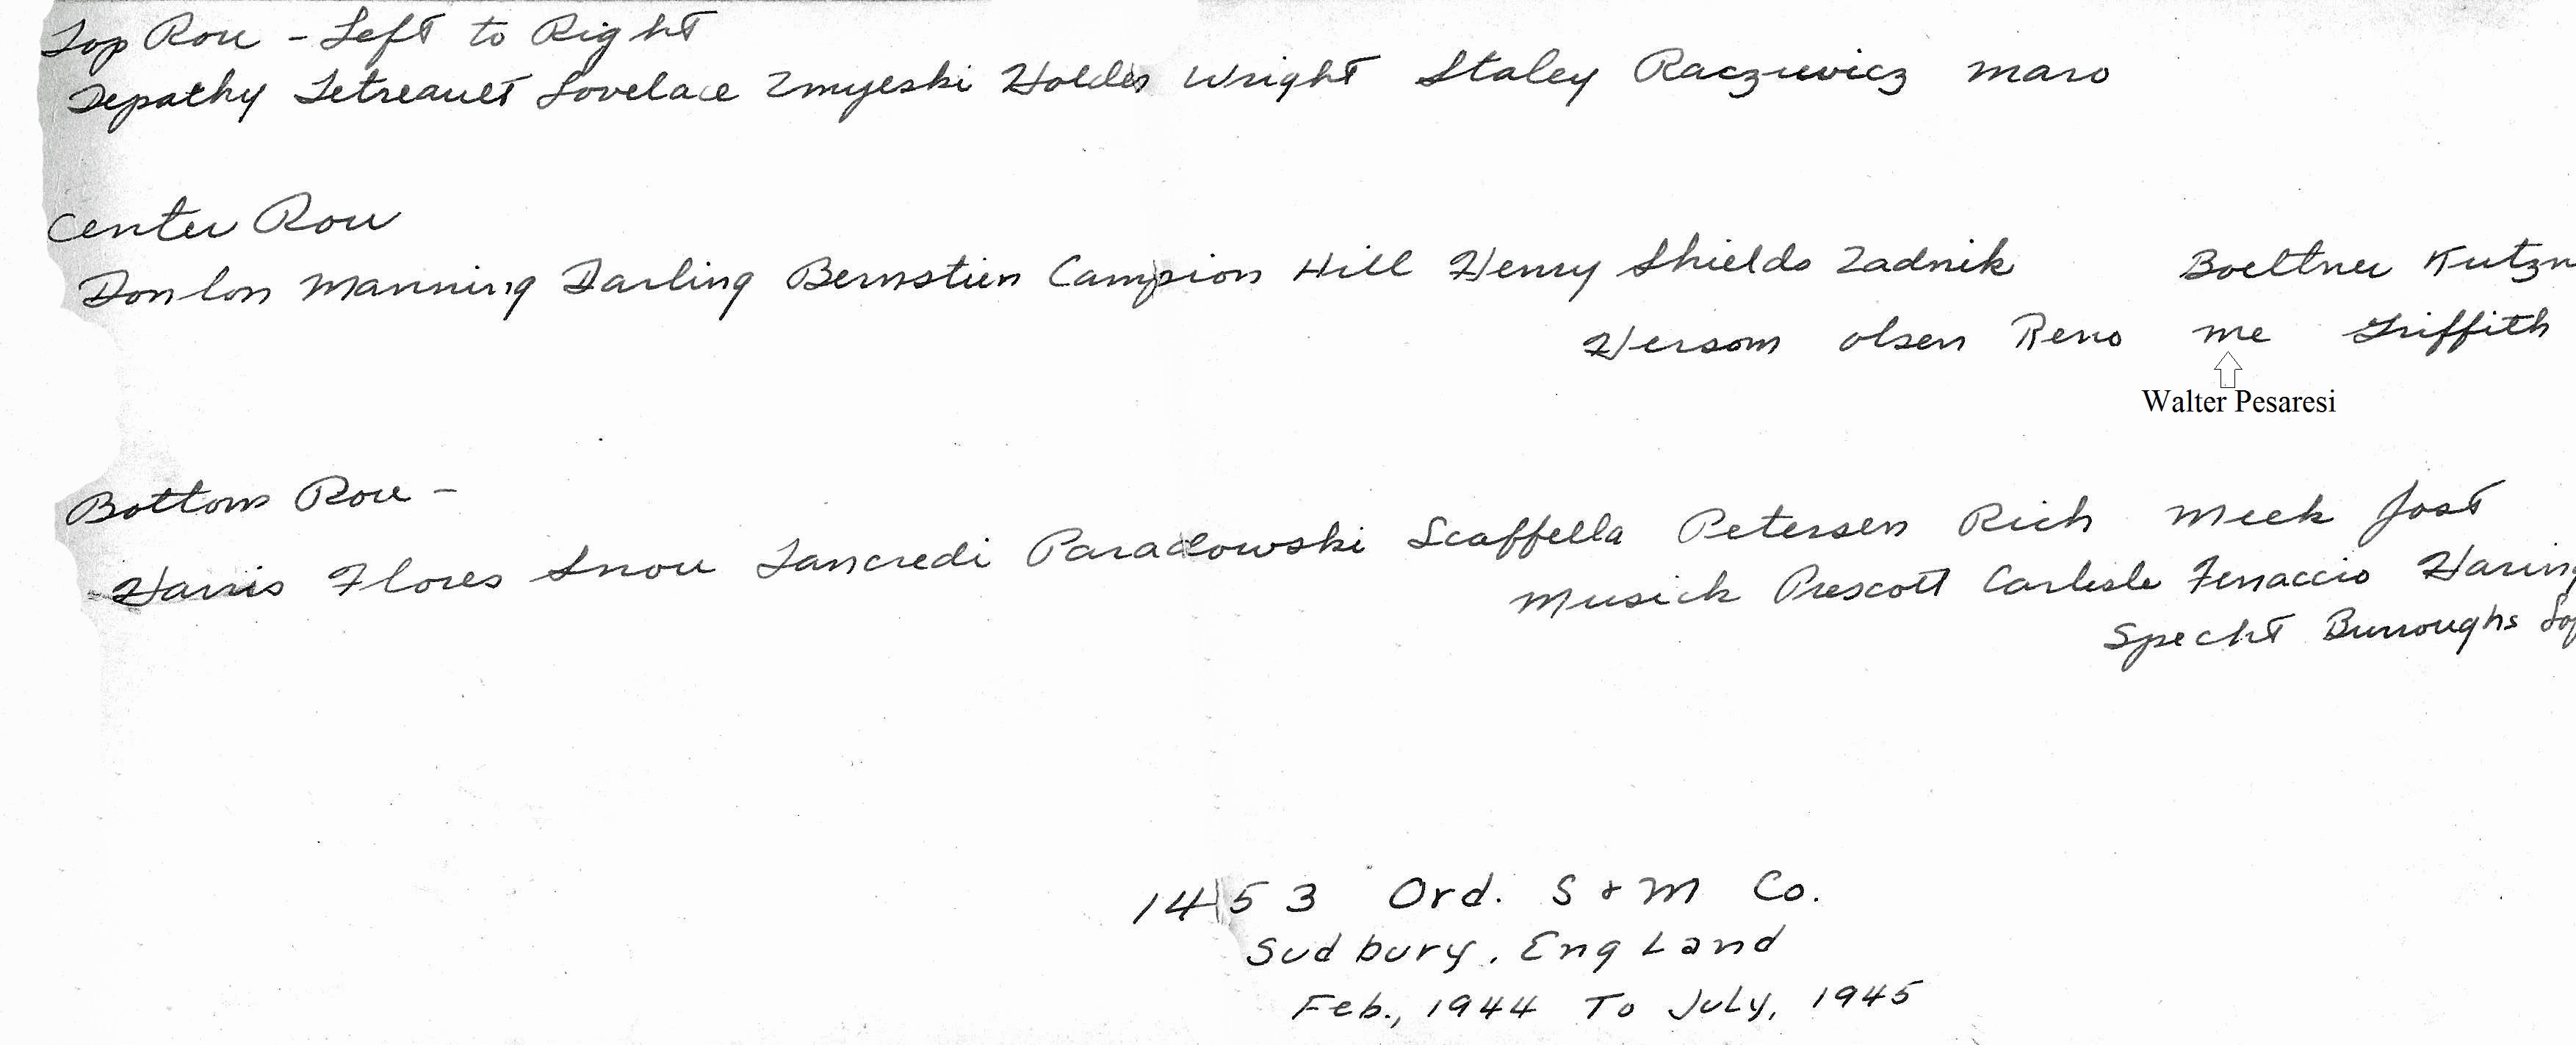 Top Row - Left to Right
Depathy Tetreault Lovelace Zmyeski Holder Wright Staley Raczwicz Maro
Center Row
Donlon Manning Darling Bernstien Campion Hill Henry Shields Zadnik Boettner Kutzn
Hersom Olsen Reno me Griffith
Walter Pesaresi
Bottom Row -
Harris Flores Snow Tancredi Paradowski Scaffella Petersen Rich Meek Jost
Musick Prescott Carlisle Ferraccio Haring
Specht Burroughs
1453 Ord. S & M Co.
Sudbury, England
Feb., 1944 To July, 1945